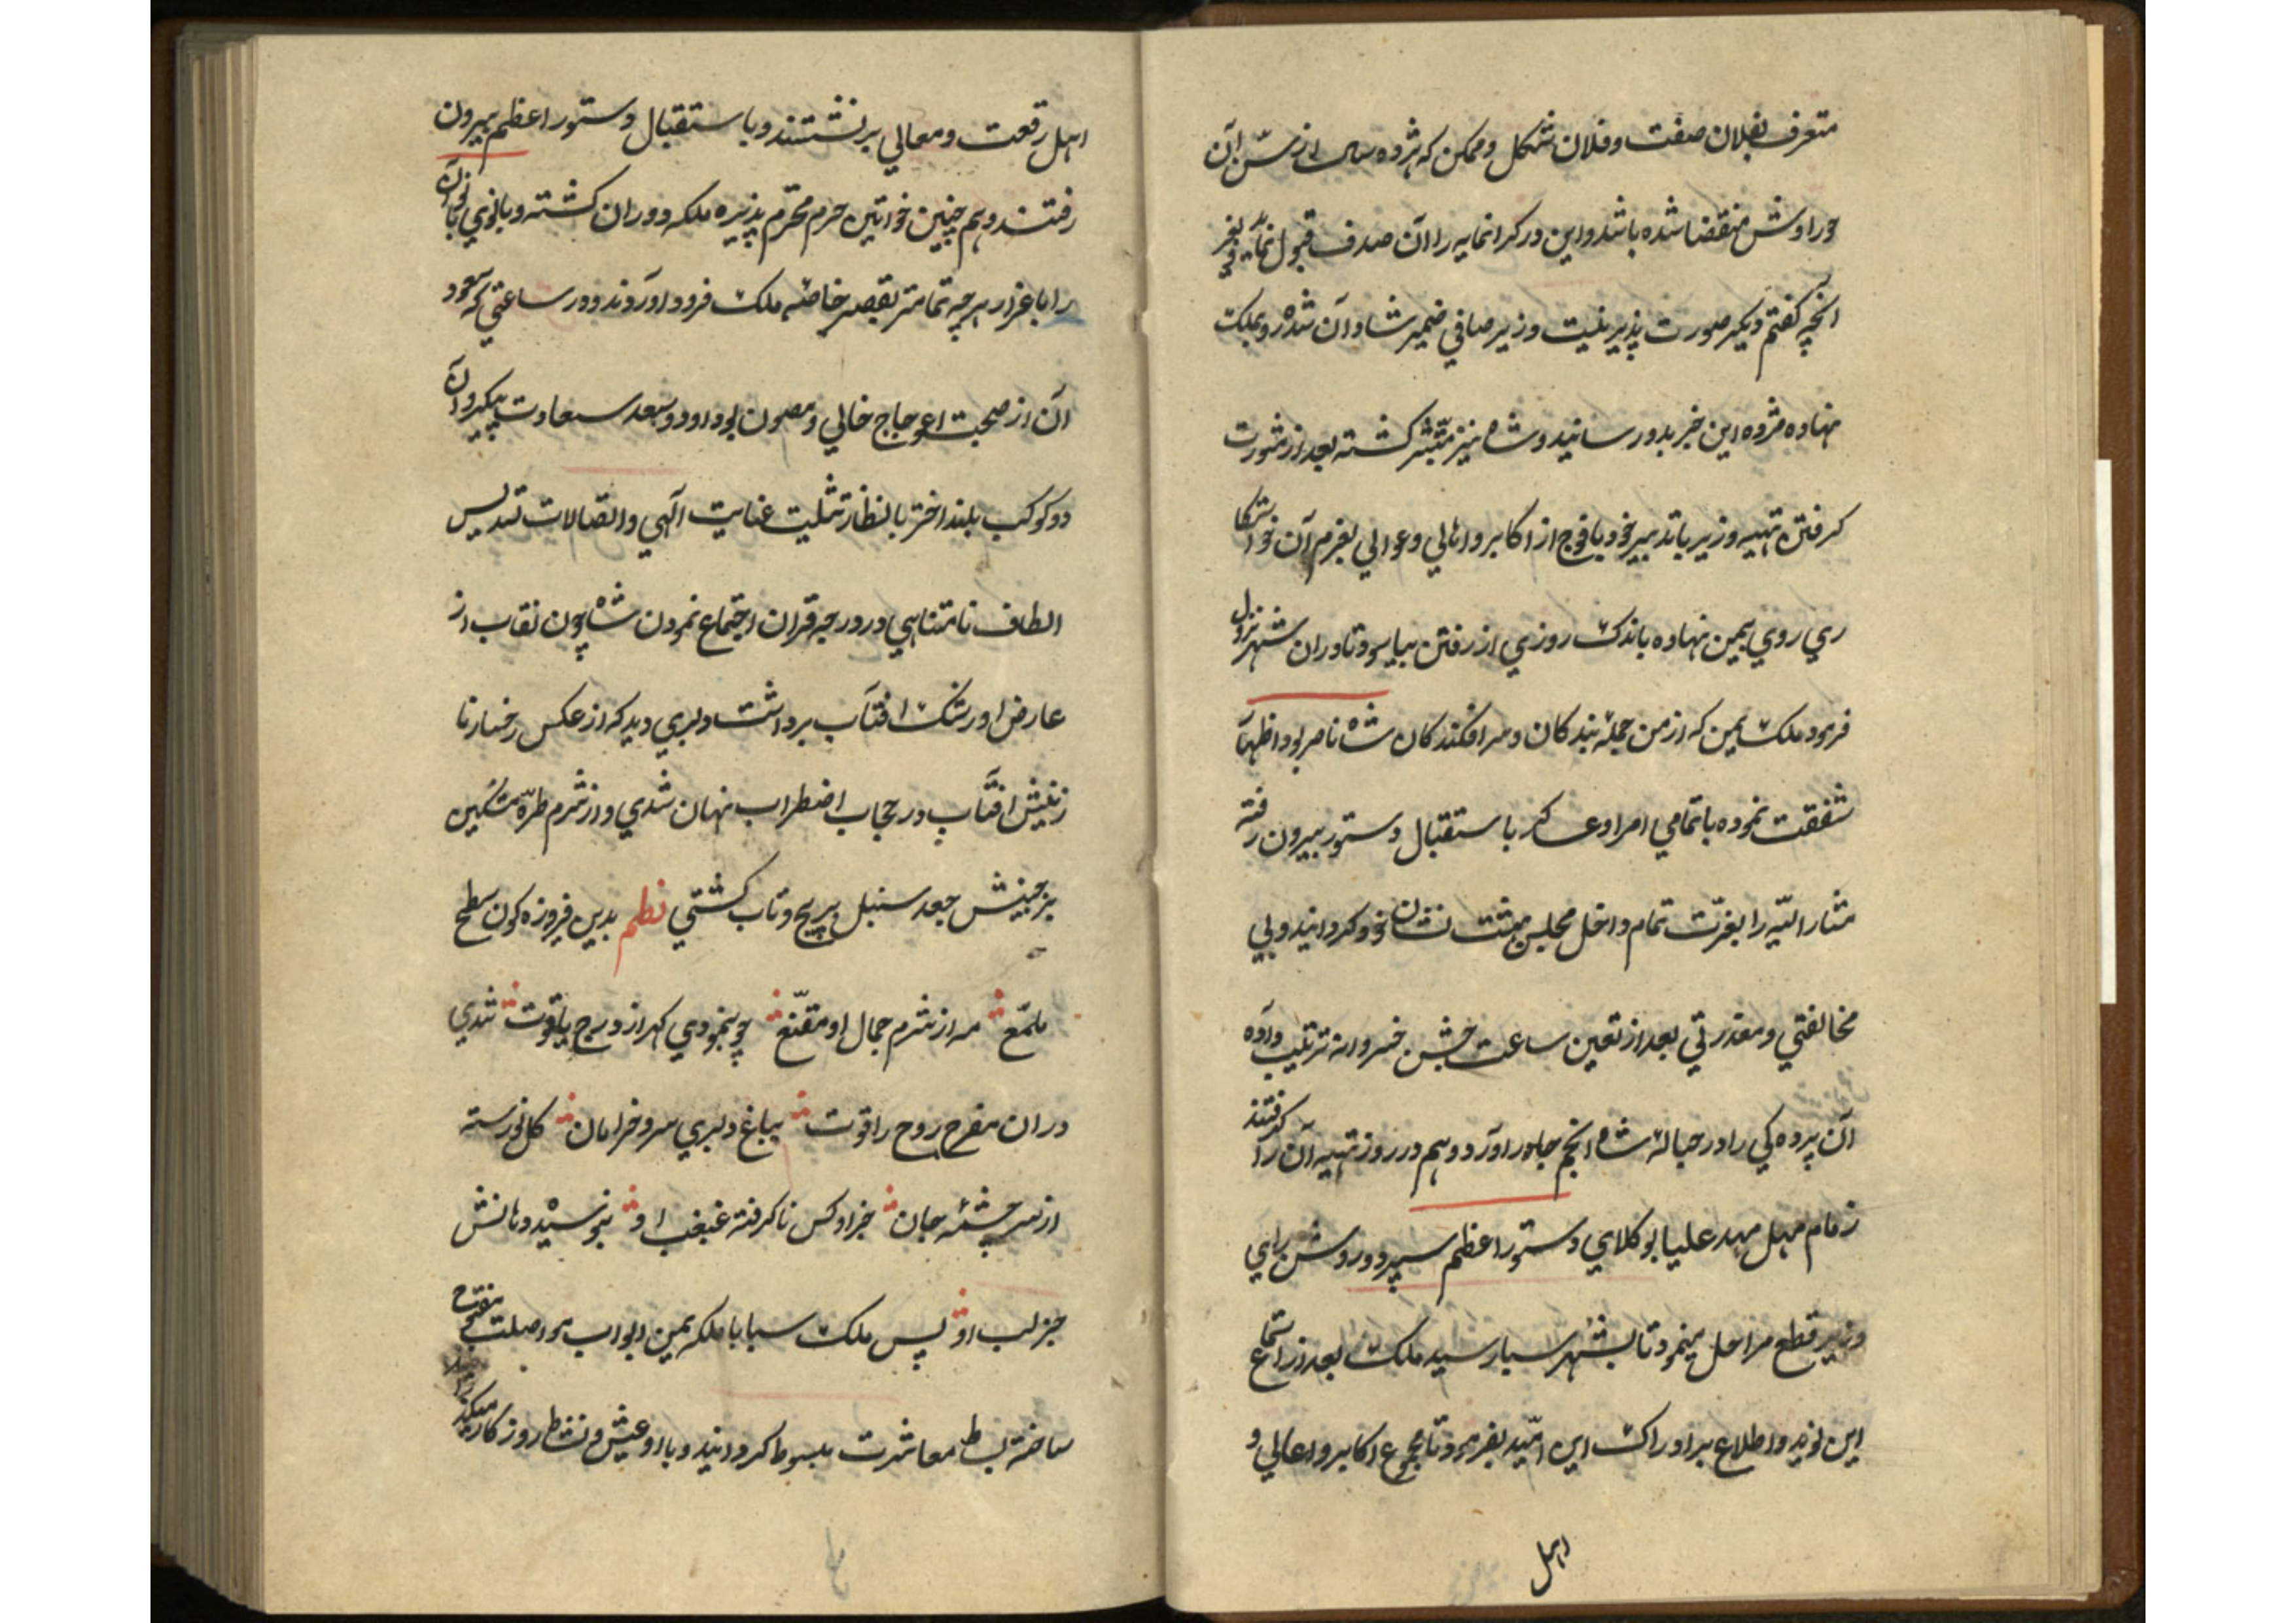 متعرف بفلان صفت و فلان شکل و ممکن که هژده سال از سن آن
حوراوش منقضا شده باشد و این در کرانمایه را آن صدف قبول نماید بغیر
انچه کفتم دیکر صورت پذیر نیست وزیر صافی ضمیر شادان شده رو بملکت
نهاده مژده این خبر بدو رسانید و شاه نیز متبشر کشته بعد از مشورت
کرفتن تهیه وزیر باتدبیر خود با فوج از اکابر و اهالی و عوالی بعزم آن خواستکا
ری روی بیمن نهاده باندک روزی از رفتن بیاسود تا در ان شهر نزول
فرمود ملک یمن که از من جمله بندکان و سرافکندکان شاه ناصر بود اظهار
شفقت نموده با تمامی امرا و عساکر با ستقبال دستور بیرون رفته
مشار الیه را بعزت تمام داخل مجلس بهشت نشان خود کردانید و بی
مخالفتی و معذرتی بعد از تعین ساعت جشن خسروانه ترتیب داده
آن پرده کی را در حباله شاه انجم جاه در اورد و هم در روز تهیه آن را کرفتند
زمام مهل مهد علیا بوکلای دستور اعظم سپرد و روشن رای
وزیر قطع مراحل مینمود تا بشهر سبا رسید ملک بعد از استماع
این نوید و اطلاع بر ادراک این امید بفرمود تا مجموع اکابر و اعالی و
اهل
اهل رفعت و معالی بر نشتند و با ستقبال دستور اعظم بیرون
رفتند و هم چنین خواتین حرم محترم پذیره ملکه دوران کشته و بانوی بانوان
را باعزاز هر چه تمامتر بقصر خاصه ملک فرود اوردند و در ساعتی که سعود
آن از صحبت اعوجاج خالی و مصون بود او دو سعد سعادت پیکر و آن
دو کوکب بلند اختر بانظار تثلیت عنایت آلهی و اتصالات تسدیس
الطاف نامتناهی در درجه قران اجتماع نمودن شاه چون نقاب از
عارض او رشک افتاب برداشت دلبری دید که از عکس رخسار نا
زنینش افتاب در حجاب اضطراب نهان شدی و از شرم طره مشکین
بر جبینش جعد سنبل پر پیچ و تاب کشتی نظم بدین فیروزه کون سطح
ملمع مه از شرم جمال او مقنع چو بنمودی کهر از درج یاقوت شدی
در ان مفرح روح را قوت بباغ دلبری سرو خرامان کل نورسته
از سر چشمه جان جز او کس نا کرفته غبغب او نبوسیده دهانش
جز لب او پس ملک سبا با ملکه یمن ابواب مواصلت مفتوح
ساخته بساط معاشرت مبسوط کردانید و با او عیش و نشاط روزکار میکند